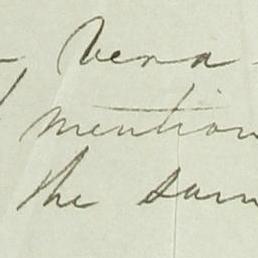 - Vera -
mention
the sam